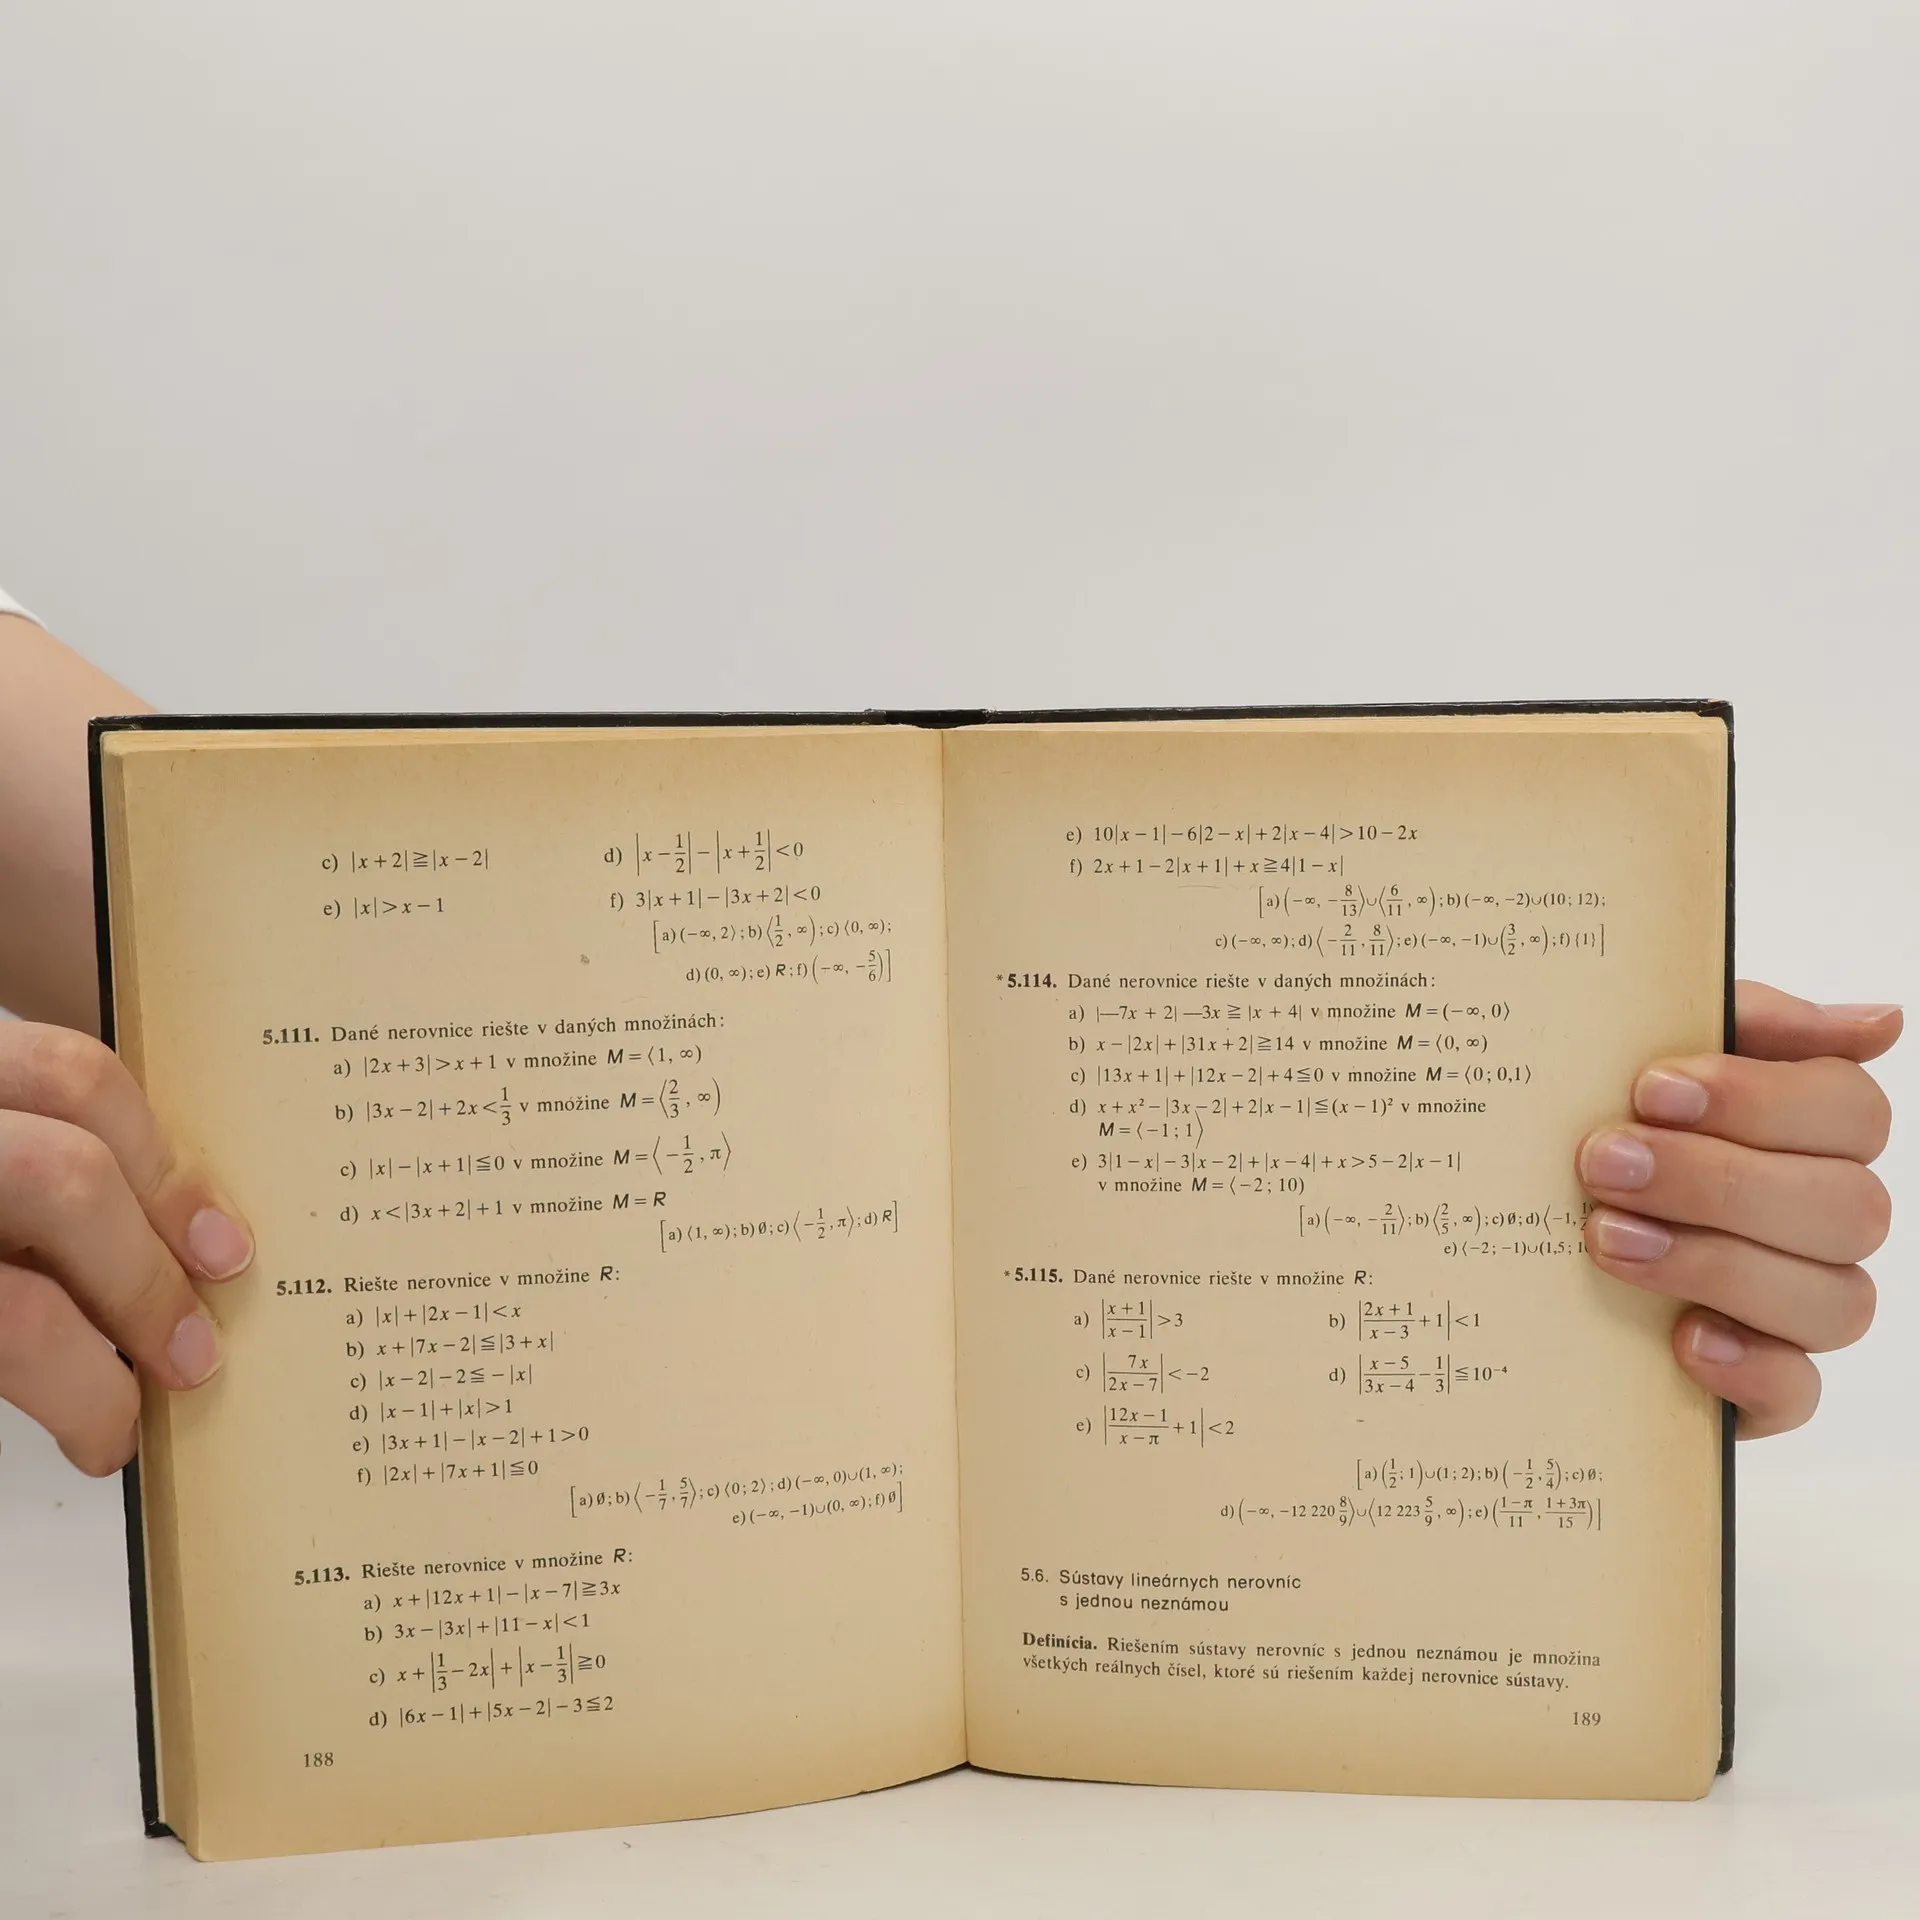 c) |x+2|≧|x−2| d) |x−1/2|−|x+1/2|<0
e) |x|>x−1 f) 3|x+1|−|3x+2|<0
[a) (−∞, 2⟩; b) ⟨1/2, ∞); c) ⟨0, ∞);
d) (0, ∞); e) R; f) (−∞, −5/6)]
5.111. Dané nerovnice riešte v daných množinách:
a) |2x+3|>x+1 v množine M=⟨1, ∞)
b) |3x−2|+2x<1/3 v množine M=⟨2/3, ∞)
c) |x|−|x+1|≦0 v množine M=⟨−1/2, π⟩
d) x<|3x+2|+1 v množine M=R
[a) ⟨1, ∞); b) ∅; c) ⟨−1/2, π⟩; d) R]
5.112. Riešte nerovnice v množine R:
a) |x|+|2x−1|<x
b) x+|7x−2|≦|3+x|
c) |x−2|−2≦−|x|
d) |x−1|+|x|>1
e) |3x+1|−|x−2|+1>0
f) |2x|+|7x+1|≦0
[a) ∅; b) ⟨−1/7, 5/7⟩; c) ⟨0; 2⟩; d) (−∞, 0)∪(1, ∞);
e) (−∞, −1)∪(0, ∞); f) ∅]
5.113. Riešte nerovnice v množine R:
a) x+|12x+1|−|x−7|≧3x
b) 3x−|3x|+|11−x|<1
c) x+|1/3−2x|+|x−1/3|≧0
d) |6x−1|+|5x−2|−3≦2
188
e) 10|x−1|−6|2−x|+2|x−4|>10−2x
f) 2x+1−2|x+1|+x≧4|1−x|
[a) (−∞, −8/13⟩∪⟨6/11, ∞); b) (−∞, −2)∪(10; 12);
c) (−∞, ∞); d) ⟨−2/11, 8/11⟩; e) (−∞, −1)∪(3/2, ∞); f) {1}]
*5.114. Dané nerovnice riešte v daných množinách:
a) |—7x + 2| —3x ≧ |x + 4| v množine M=(−∞, 0⟩
b) x−|2x|+|31x+2|≧14 v množine M=⟨0, ∞)
c) |13x+1|+|12x−2|+4≦0 v množine M=⟨0; 0,1⟩
d) x+x²−|3x−2|+2|x−1|≦(x−1)² v množine
M=⟨−1; 1⟩
e) 3|1−x|−3|x−2|+|x−4|+x>5−2|x−1|
v množine M=⟨−2; 10)
[a) (−∞, −2/11⟩; b) ⟨2/5, ∞); c) ∅; d) ⟨−1,
e) ⟨−2; −1)∪(1,5;
*5.115. Dané nerovnice riešte v množine R:
a) |(x+1)/(x−1)|>3 b) |(2x+1)/(x−3)+1|<1
c) |7x/(2x−7)|<−2 d) |(x−5)/(3x−4)−1/3|≦10⁻⁴
e) |(12x−1)/(x−π)+1|<2
[a) (1/2; 1)∪(1; 2); b) (−1/2, 5/4); c) ∅;
d) (−∞, −12 220 8/9⟩∪⟨12 223 5/9, ∞); e) ((1−π)/11, (1+3π)/15)]
5.6. Sústavy lineárnych nerovníc
s jednou neznámou
Definícia. Riešením sústavy nerovníc s jednou neznámou je množina
všetkých reálnych čísel, ktoré sú riešením každej nerovnice sústavy.
189